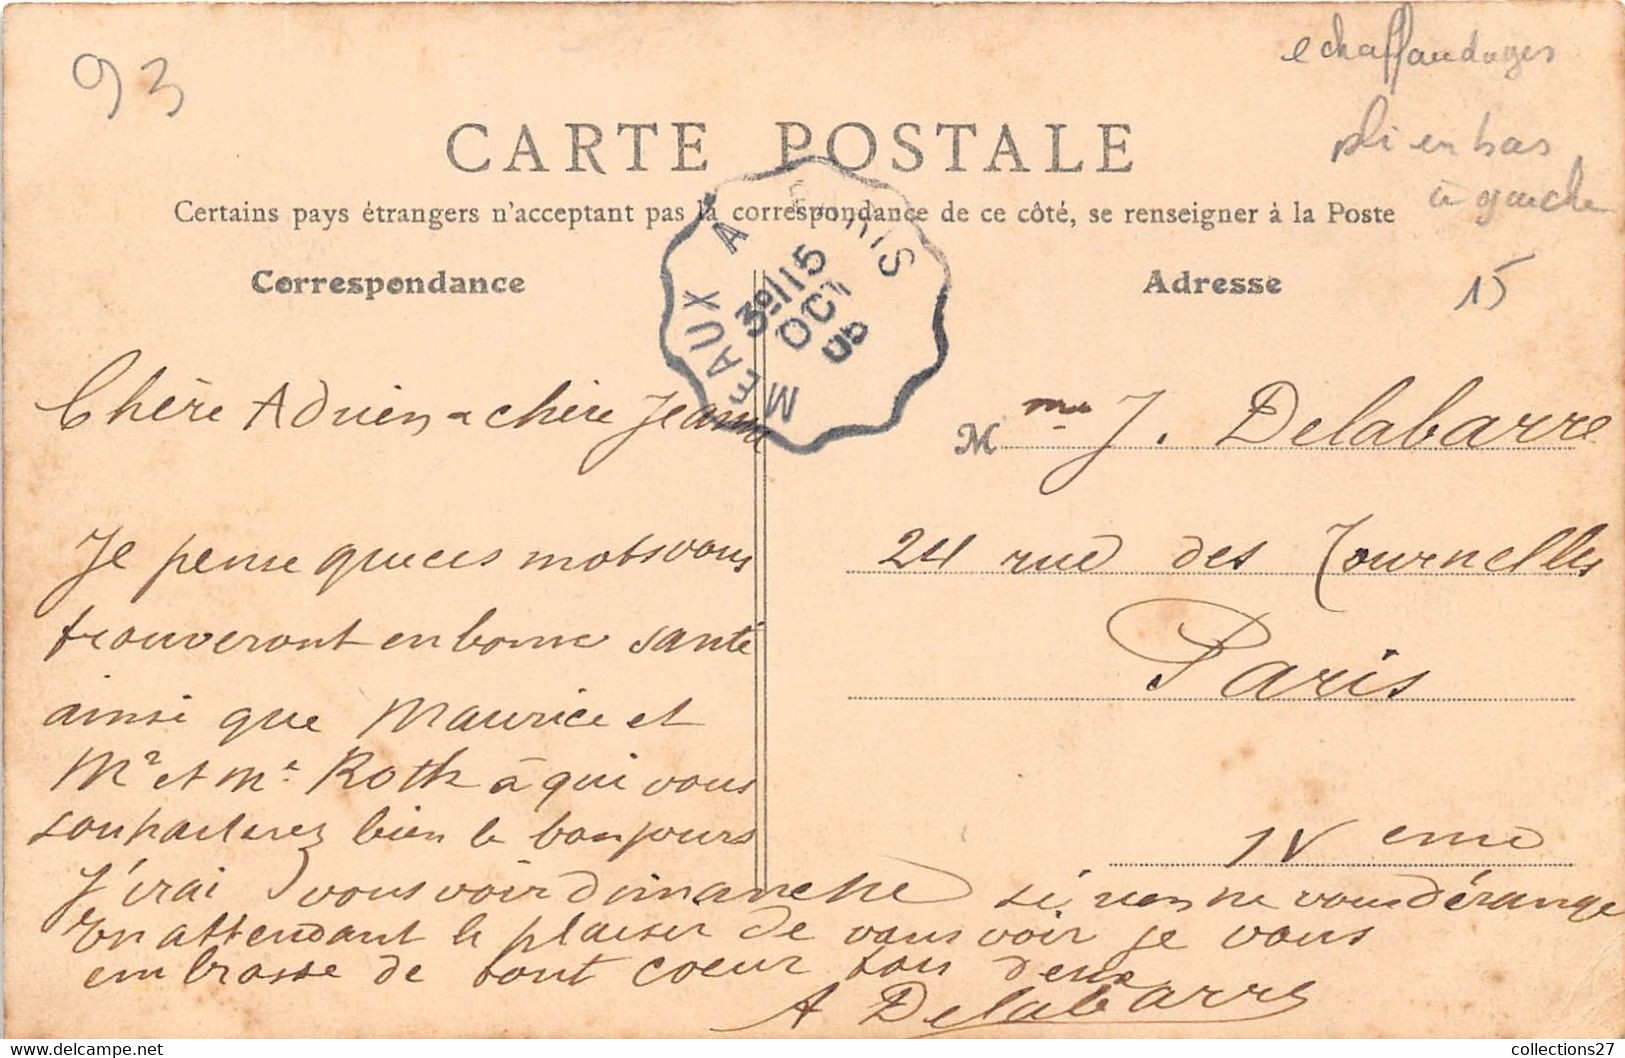 93
echaffaudages
pli en bas
à gauche
CARTE POSTALE
Certains pays étrangers n'acceptant pas la correspondance de ce côté, se renseigner à la Poste
Correspondance
Adresse
15
MEAUX A PARIS
3º/15
OCT
05
Chère Adrien & chère Jeanne
Je pense que ces mots vous
trouveront en bonne santé
ainsi que Maurice et
Mr et Me Roth à qui vous
souhaiterez bien le bonjours
J'irai vous voir dimanche si rien ne vous dérange
En attendant le plaisir de vous voir je vous
embrasse de tout coeur tou deux
A Delabarre
Mme J. Delabarre
24 rue des Tournelles
Paris
IV eme
collections27